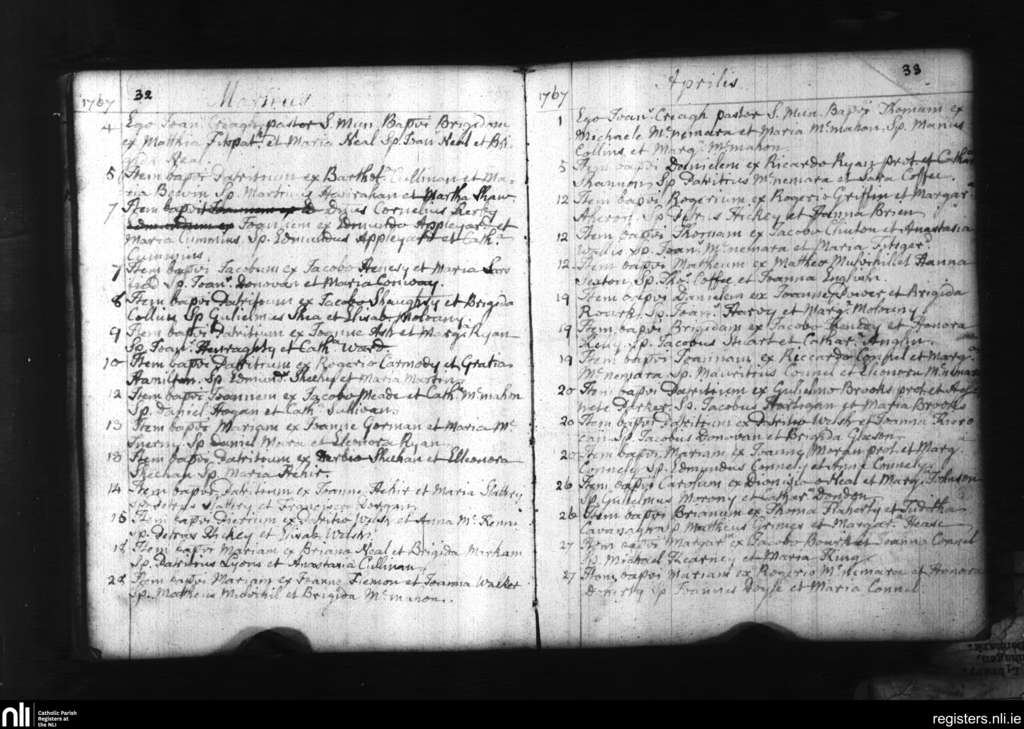 1767 32 Martius
4 Ego Joan. Creagh pastor S. Mun. Bapvi Brigidam
ex Matthia Fitzpat. et Maria Neal Sp. Joan Neal et Bri
gida Neal.
5 Item bapvi Patritium ex Barthol. Cullinan et Ma-
ria Bowin Sp. Martinus Hanrahan et Martha Shaw
7 Item bapvit Joannem ex Dnus Cornelius Kerby
Edmundum ex Joanem ex Edmundo Appleyard et
Maria Cummins. Sp. Edmundus Appleyard et Cath.
Cummins.
7 Item bapvi Jacobum ex Jacobo Henesy et Maria
Sp. Joan. Donovan et Maria Conway.
8 Item bapvi Patritium ex Jacobo Shaughny et Brigida
Collins Sp. Gulielmus Shea et Elisab. Molowny.
9 Item bapvi Patritium ex Joanne Ash et Marg. Ryan
Sp. Joan. Henraghty et Cath. Ward.
10 Item bapvi Patritium ex Rogerio Carmody et Gratia
Hamilton. Sp. Edmund. Sheehy et Maria Martin
12 Item bapvi Joannem ex Jacobo Meade et Cath. McMahon
Sp. Daniel Hogan et Cath. Sullivan.
13 Item bapvi Mariam ex Joanne Gorman et Maria Mc
Inerny Sp. Daniel Mara et Eleonora Ryan.
13 Item bapvi Patritium ex Darbio Shehan et Elleonora
Shehan Sp. Maria Hehir.
14 Item bapvi Patritium ex Joanne Hehir et Maria Slattery
Sp. Petrus Slattery et Francisca
15 Item bapvi Pierrium ex Patritio Walsh et Anna Mc
Sp. Petrus Hickey et Elisab. Welsh.
Item bapvi Mariam ex Briano Neal et Brigida
Sp. Patritius Lyons et Anastasia Cullinan.
Item bapvi Mariam ex Joanne et Joanna Walker
Sp. Matheus Mulvihil et Brigida McMahon.
1767 Aprilis 33
1 Ego Joan. Creagh pastor S. Mun. Bapvi Thomam ex
Michaele McNemara et Maria McMahon. Sp. Manus
Collins et Marg. McMahon.
5 Item bapvi Danielem ex Ricardo Ryan prot. et Cathar
Shannon Sp. Patritius McNemara et Sara Coffee.
12 Item bapvi Rogerium ex Rogerio Griffin et Margar.
Ahern. Sp. Petrus Hickey et Hanna Brien
12 Item bapvi Thomam ex Jacobo et Anastasia
Wallis Sp. Joan. McNemara et Maria Fitzger.
12 Item bapvi Matheum ex Matheo Mulvihil et Hanna
Sexton Sp. Tho. Coffee et Joanna English.
19 Item bapvi Danielem ex Joanne Power et Brigida
Rourk. Sp. Joan. Harvy et Marg. Molowny.
19 Item bapvi Brigidam ex Jacobo et Honora
Kelly Sp. Jacobus Stuart et Cathar. Anglin.
19 Item bapvi Joannam ex Riccardo Connel et Marg.
McNemara Sp. Mauritius Connel et Eleonora McNemara
20 Item bapvi Patritium ex Gulielmo Brooks prot. et Ag-
nete Parker Sp. Jacobus Hartigan et Maria Brooks
20 Item bapvi Patritium ex Patritio Welsh et Joanna
Sp. Jacobus Donovan et Brigida Gleeson.
20 Item bapvi Mariam ex Joanne Moran prot. et Marg.
Connely Sp. Edmundus Connely et Anna Connely.
26 Item bapvi Carolum ex Dionisio o Neal et Marg. Johnson
Sp. Gulielmus Morony et Cathar. Dondon.
26 Item bapvi Brianum ex Thoma Flaherty et Juditha
Cavanagh Sp. Matheus Grimes et Margar. Hease.
27 Item bapvi Margar. ex Jacobo Bourk et Joanna Connel
Sp. Michael Kearney et Maria King.
27 Item bapvi Mariam ex Rogerio McNemara et Honora
Doherty Sp. Joannes Doyle et Maria Connel.
nli Catholic Parish
Registers at
the NLI
registers.nli.ie